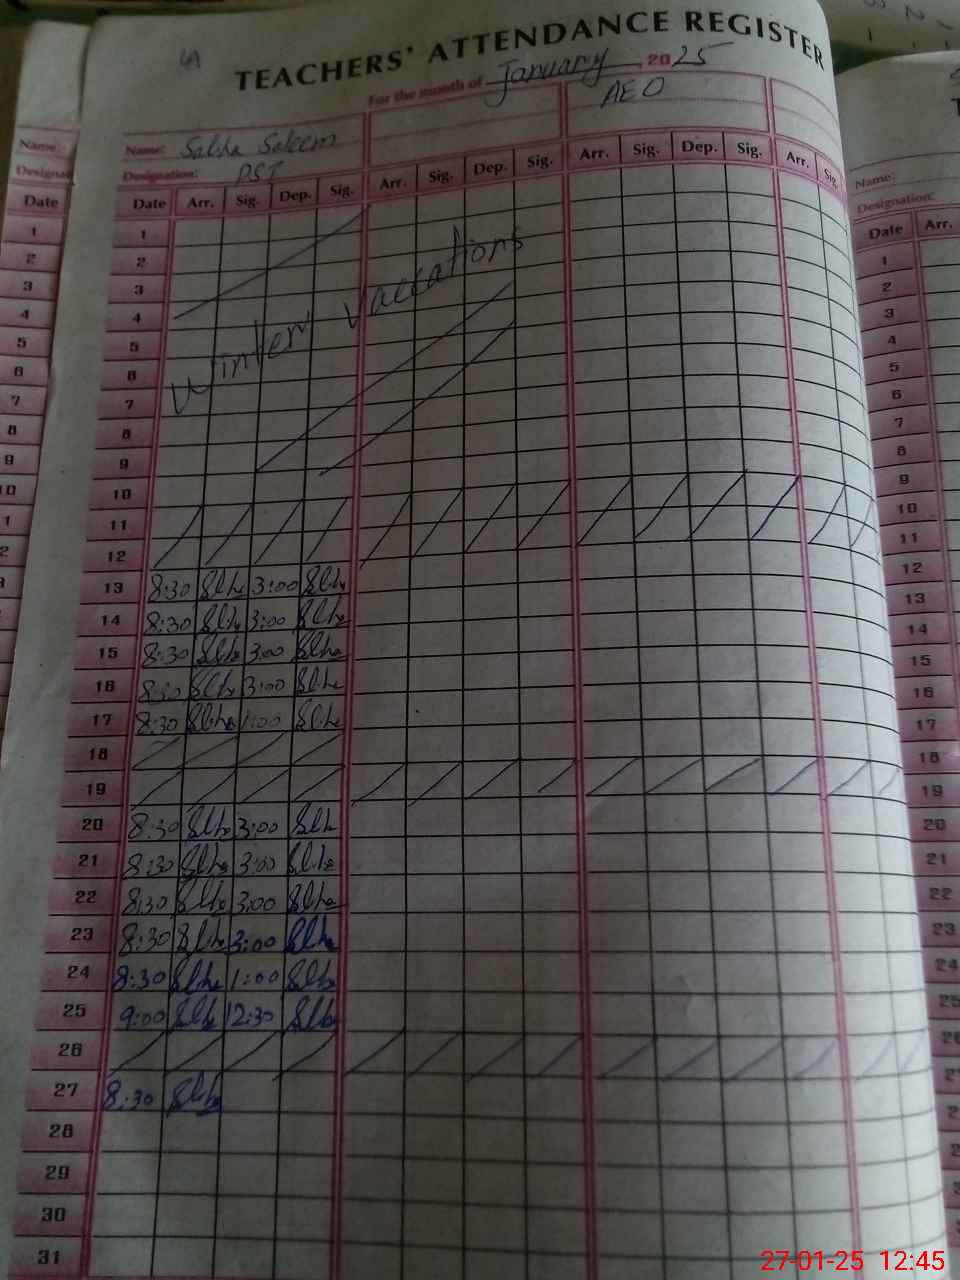 TEACHERS' ATTENDANCE REGISTER
For the month of January, 2025
AEO
Name: Sabha Saleem
Designation: PST
Date Arr. Sig. Dep. Sig. Arr. Sig. Dep. Sig. Arr. Sig. Dep. Sig. Arr. Sig.
1
2
3
4
5
6
7
8
9
Winter vaccations
10
11
12
13 8:30 3:00
14 8:30 3:00
15 8:30 3:00
16 8:30 3:00
17 8:30 1:00
18
19
20 8:30 3:00
21 8:30 3:00
22 8:30 3:00
23 8:30 3:00
24 8:30 1:00
25 9:00 12:30
26
27 8:30
28
29
30
31
Name:
Date
1
2
3
4
5
6
7
8
9
Name:
Designation:
Date Arr.
1
2
3
4
5
6
7
8
9
10
11
12
13
14
15
16
17
18
19
20
21
22
23
24
25
27-01-25 12:45